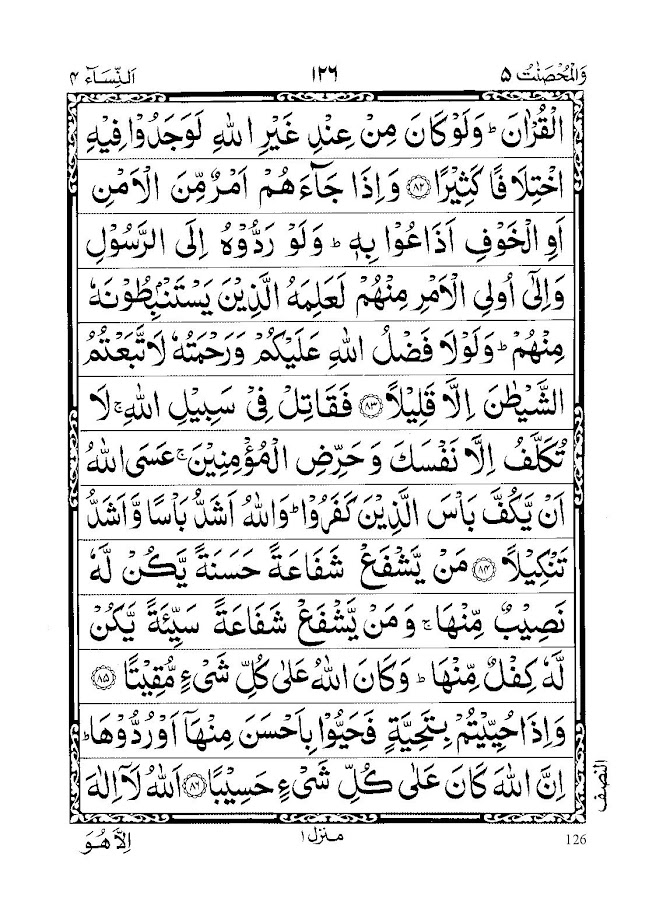 وَالْمُحْصَنٰتُ ۵ ۱۲۶ اَلنِّسَآء ۴
الْقُرْاٰنَ ؕ وَلَوْ كَانَ مِنْ عِنْدِ غَيْرِ اللّٰهِ لَوَجَدُوْا فِيْهِ
اخْتِلَافًا كَثِيْرًا ﴿۸۲﴾ وَاِذَا جَآءَهُمْ اَمْرٌ مِّنَ الْاَمْنِ
اَوِ الْخَوْفِ اَذَاعُوْا بِهٖ ؕ وَلَوْ رَدُّوْهُ اِلَى الرَّسُوْلِ
وَاِلٰٓى اُولِى الْاَمْرِ مِنْهُمْ لَعَلِمَهُ الَّذِيْنَ يَسْتَنْۢبِطُوْنَهٗ
مِنْهُمْ ؕ وَلَوْلَا فَضْلُ اللّٰهِ عَلَيْكُمْ وَرَحْمَتُهٗ لَاتَّبَعْتُمُ
الشَّيْطٰنَ اِلَّا قَلِيْلًا ﴿۸۳﴾ فَقَاتِلْ فِىْ سَبِيْلِ اللّٰهِ ۚ لَا
تُكَلَّفُ اِلَّا نَفْسَكَ وَحَرِّضِ الْمُؤْمِنِيْنَ ۚ عَسَى اللّٰهُ
اَنْ يَّكُفَّ بَاْسَ الَّذِيْنَ كَفَرُوْا ؕ وَاللّٰهُ اَشَدُّ بَاْسًا وَّاَشَدُّ
تَنْكِيْلًا ﴿۸۴﴾ مَنْ يَّشْفَعْ شَفَاعَةً حَسَنَةً يَّكُنْ لَّهٗ
نَصِيْبٌ مِّنْهَا ۚ وَمَنْ يَّشْفَعْ شَفَاعَةً سَيِّئَةً يَّكُنْ
لَّهٗ كِفْلٌ مِّنْهَا ؕ وَكَانَ اللّٰهُ عَلٰى كُلِّ شَىْءٍ مُّقِيْتًا ﴿۸۵﴾
وَاِذَا حُيِّيْتُمْ بِتَحِيَّةٍ فَحَيُّوْا بِاَحْسَنَ مِنْهَاۤ اَوْ رُدُّوْهَا ؕ
اِنَّ اللّٰهَ كَانَ عَلٰى كُلِّ شَىْءٍ حَسِيْبًا ﴿۸۶﴾ اَللّٰهُ لَاۤ اِلٰهَ
النصف
اِلَّا هُوَ منزل ۱ 126